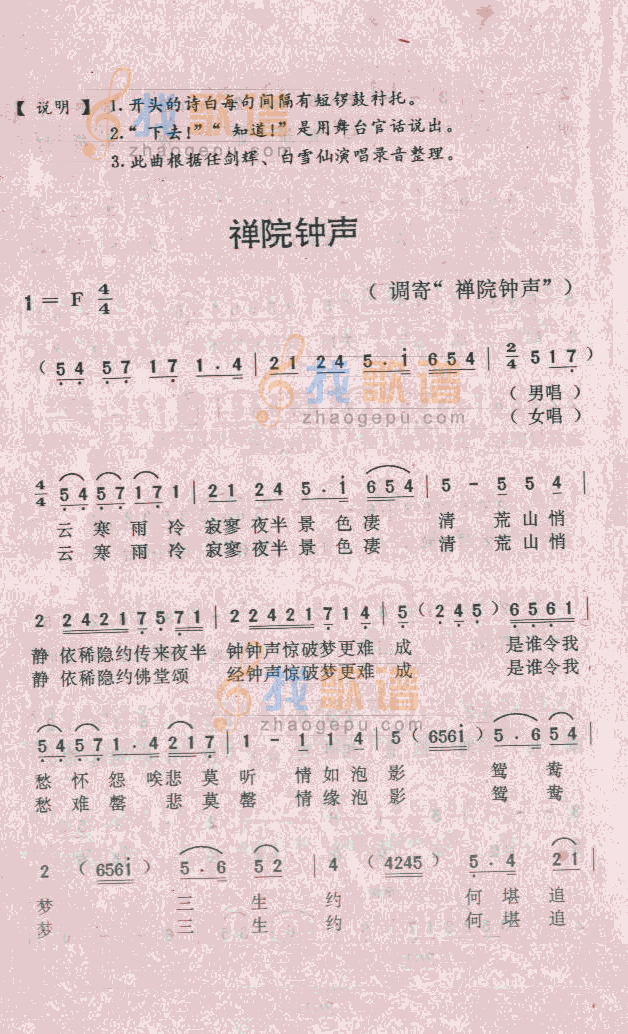 【 说明 】 1. 开头的诗白每句间隔有短锣鼓衬托。
2. “ 下去!” “ 知道!” 是用舞台官话说出。
3. 此曲根据任剑辉、白雪仙演唱录音整理。
我歌谱
zhaogepu.com
禅院钟声
1 = F 4/4 ( 调寄“ 禅院钟声” )
( 5 4 5 7 1 7 1 . 4 | 2 1 2 4 5 . i 6 5 4 | 2/4 5 1 7 )
我歌谱
zhaogepu.com
( 男唱 )
( 女唱 )
4/4 5 4 5 7 1 7 1 | 2 1 2 4 5 . i 6 5 4 | 5 - 5 5 4 |
云 寒 雨 冷 寂寥 夜半 景 色 凄 清 荒 山 悄
云 寒 雨 冷 寂寥 夜半 景 色 凄 清 荒 山 悄
2 2 4 2 1 7 5 7 1 | 2 2 4 2 1 7 1 4 | 5 ( 2 4 5 ) 6 5 6 1 |
静 依稀隐约传来夜半 钟钟声惊破梦更难 成 是谁令我
静 依稀隐约佛堂颂 经钟声惊破梦更难 成 是谁令我
我歌谱
zhaogepu.com
5 4 5 7 1 . 4 2 1 7 | 1 - 1 1 4 | 5 ( 6 5 6 i ) 5 . 6 5 4 |
愁 怀 怨 唉 悲 莫 听 情 如 泡 影 鸳 鸯
愁 难 罄 悲 莫 罄 情 缘 泡 影 鸳 鸯
2 ( 6 5 6 i ) 5 . 6 5 2 | 4 ( 4 2 4 5 ) 5 . 4 2 1 |
梦 三 生 约 何 堪 追
梦 三 生 约 何 堪 追